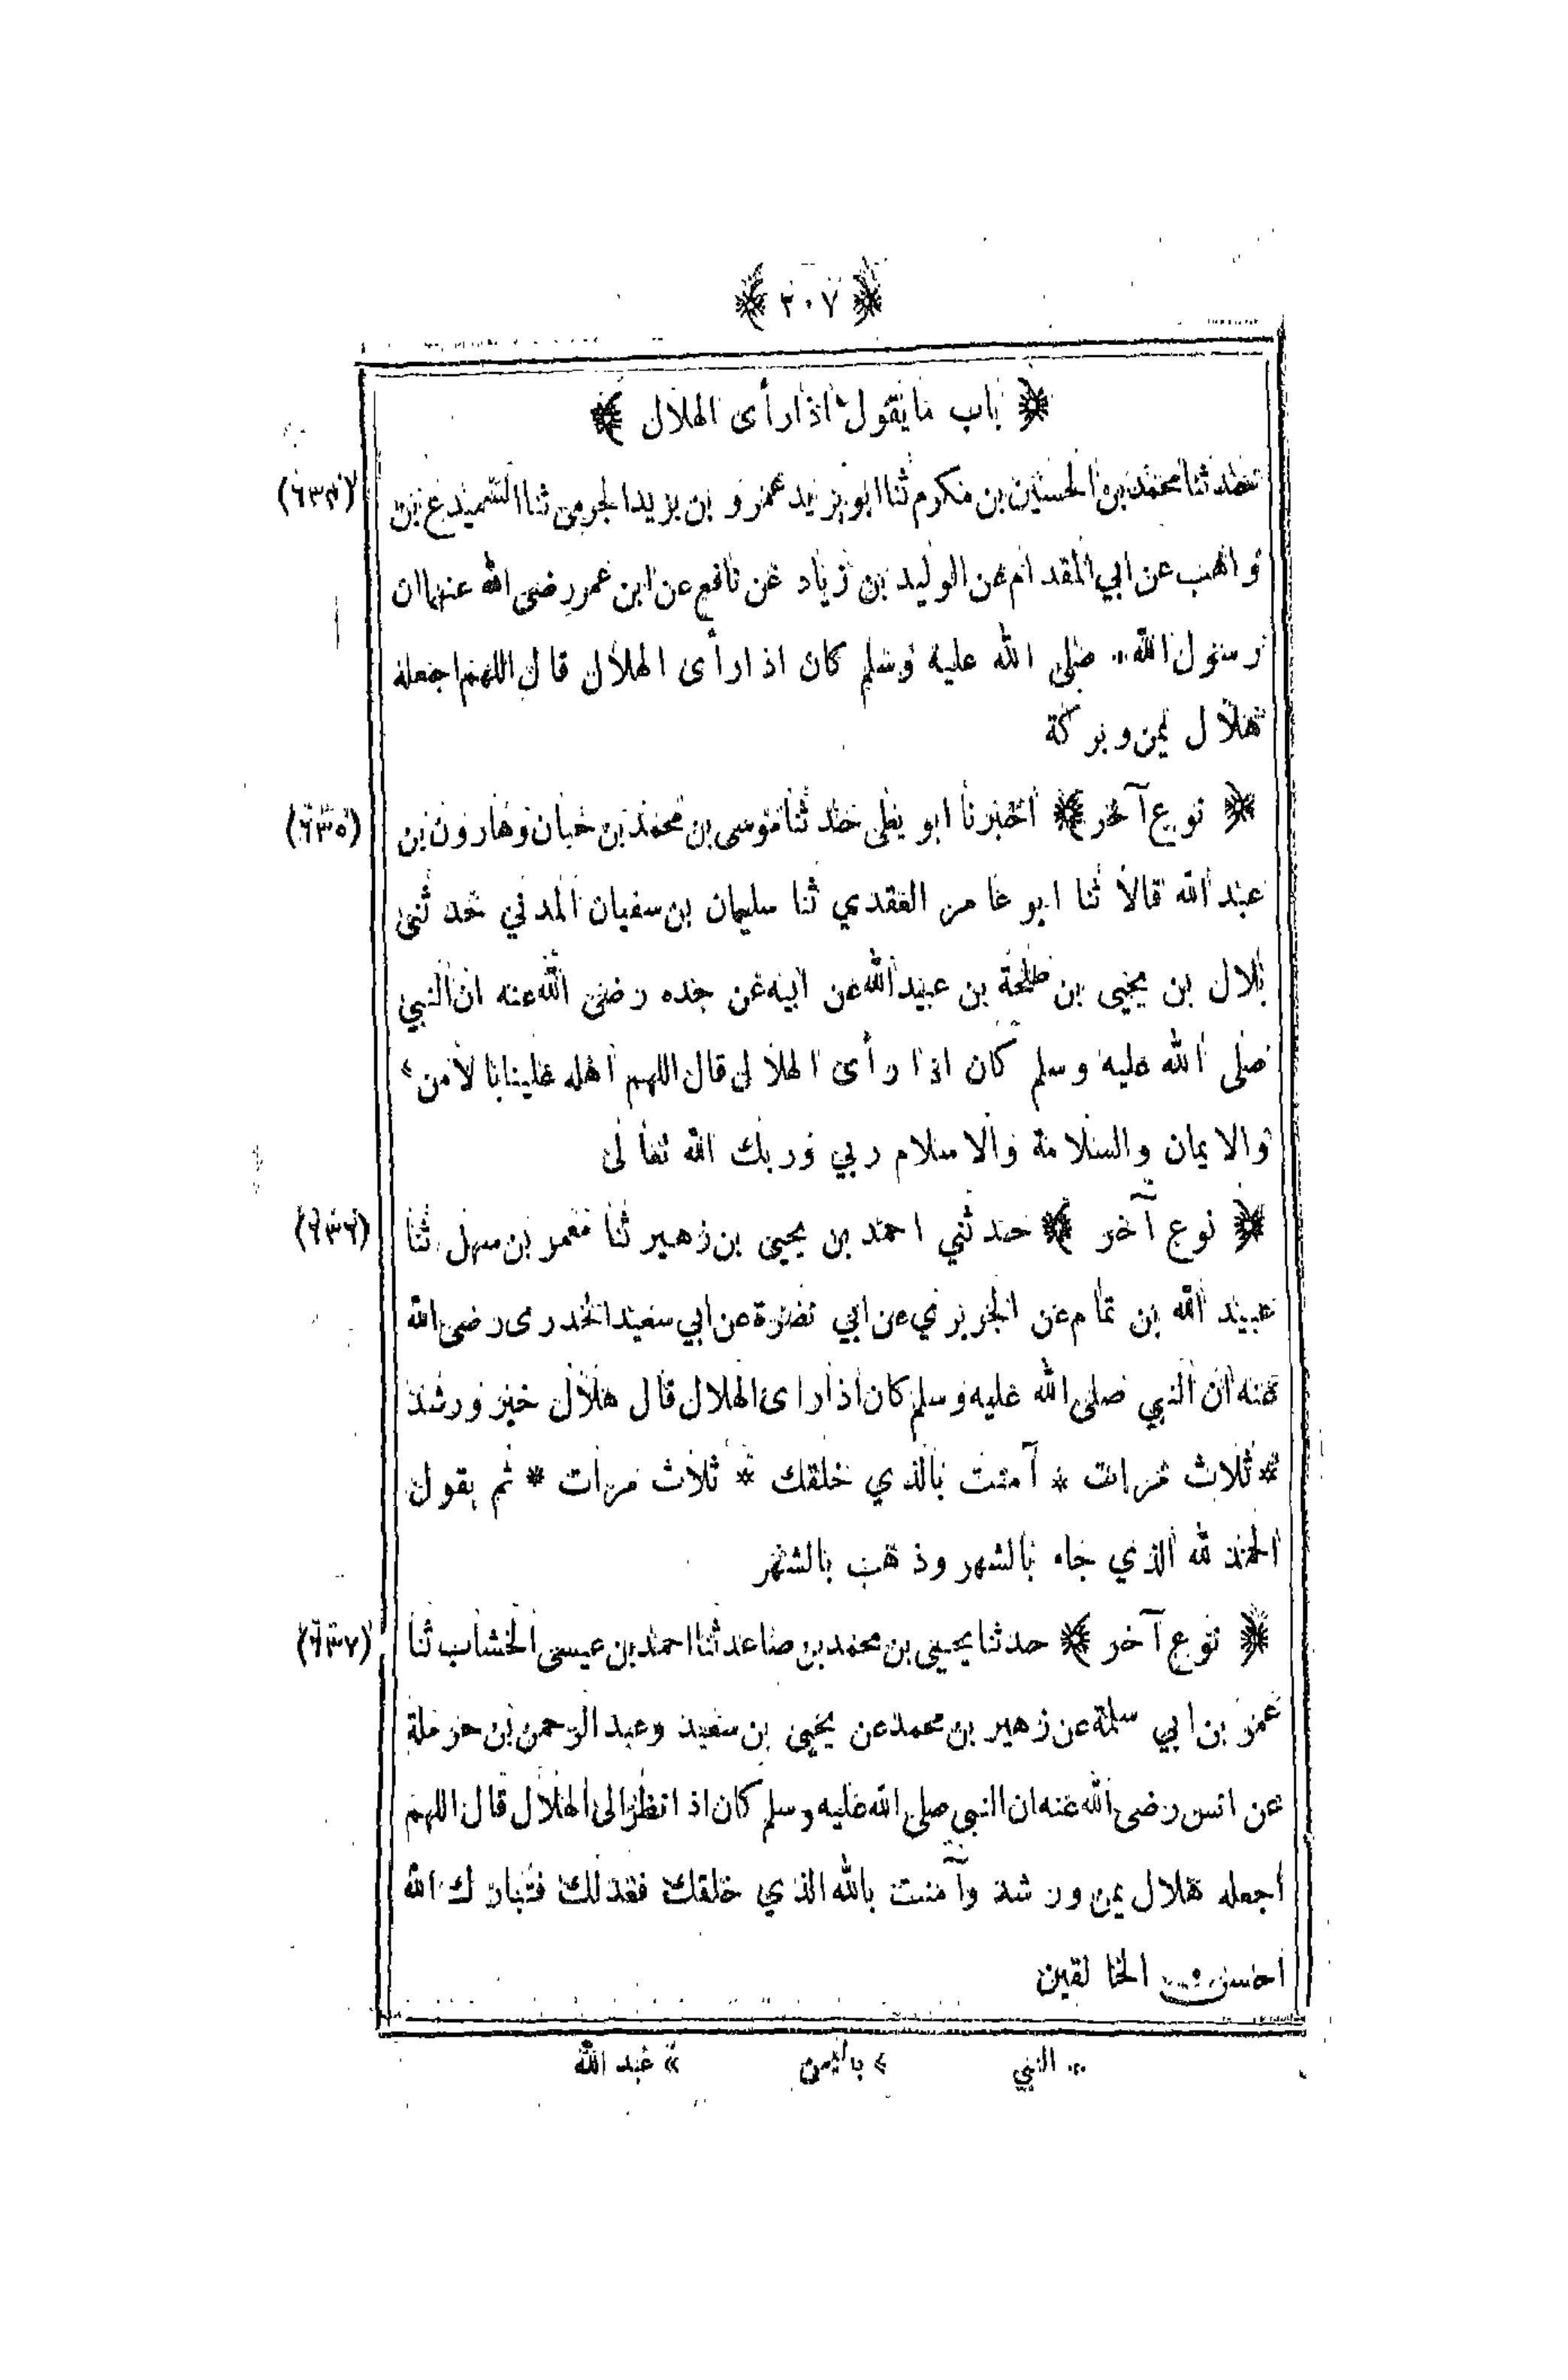 ﴿ ٢٠٧ ﴾
﴿ باب ما يقول اذا رأى الهلال ﴾
حدثنا محمد بن الحسين بن مكرم ثنا ابو يزيد عمرو بن يزيد الجرمى ثنا السميدع بن (٦٣٤)
واهب عن ابي المقدام عن الوليد بن زياد عن نافع عن ابن عمر رضى الله عنهما ان
رسول الله .. صلى الله عليه وسلم كان اذا رأى الهلال قال اللهم اجعله
هلال يمن وبركة
﴿ نوع آخر ﴾ اخبرنا ابو يعلى حدثنا موسى بن محمد بن حبان وهارون بن (٦٣٥)
عبد الله قالا ثنا ابو عامر العقدي ثنا سليمان بن سفيان المدني حدثنى
بلال بن يحيى بن طلحة بن عبيد الله عن ابيه عن جده رضى الله عنه ان النبي
صلى الله عليه وسلم كان اذا رأى الهلال قال اللهم اهله علينا بالأمن »
والايمان والسلامة والاسلام ربي وربك الله تعالى
﴿ نوع آخر ﴾ حدثني احمد بن يحيى بن زهير ثنا معمر بن سهل ثنا (٦٣٦)
عبيد الله بن تمام عن الجريري عن ابي نضرة عن ابي سعيد الخدرى رضى الله
عنه ان النبي صلى الله عليه وسلم كان اذا راى الهلال قال هلال خير ورشد
* ثلاث مرات * آمنت بالذي خلقك * ثلاث مرات * ثم يقول
الحمد لله الذي جاء بالشهر وذهب بالشهر
﴿ نوع آخر ﴾ حدثنا يحيى بن محمد بن صاعد ثنا احمد بن عيسى الخشاب ثنا (٦٣٧)
عمرو بن ابي سلمة عن زهير بن محمد عن يحيى بن سعيد وعبد الرحمن بن حرملة
عن انس رضى الله عنه ان النبى صلى الله عليه وسلم كان اذا نظر الى الهلال قال اللهم
اجعله هلال يمن ورشد وآمنت بالله الذي خلقك فعدلك فتبارك الله
احسن الخالقين
.. النبي » باليمن » عبد الله